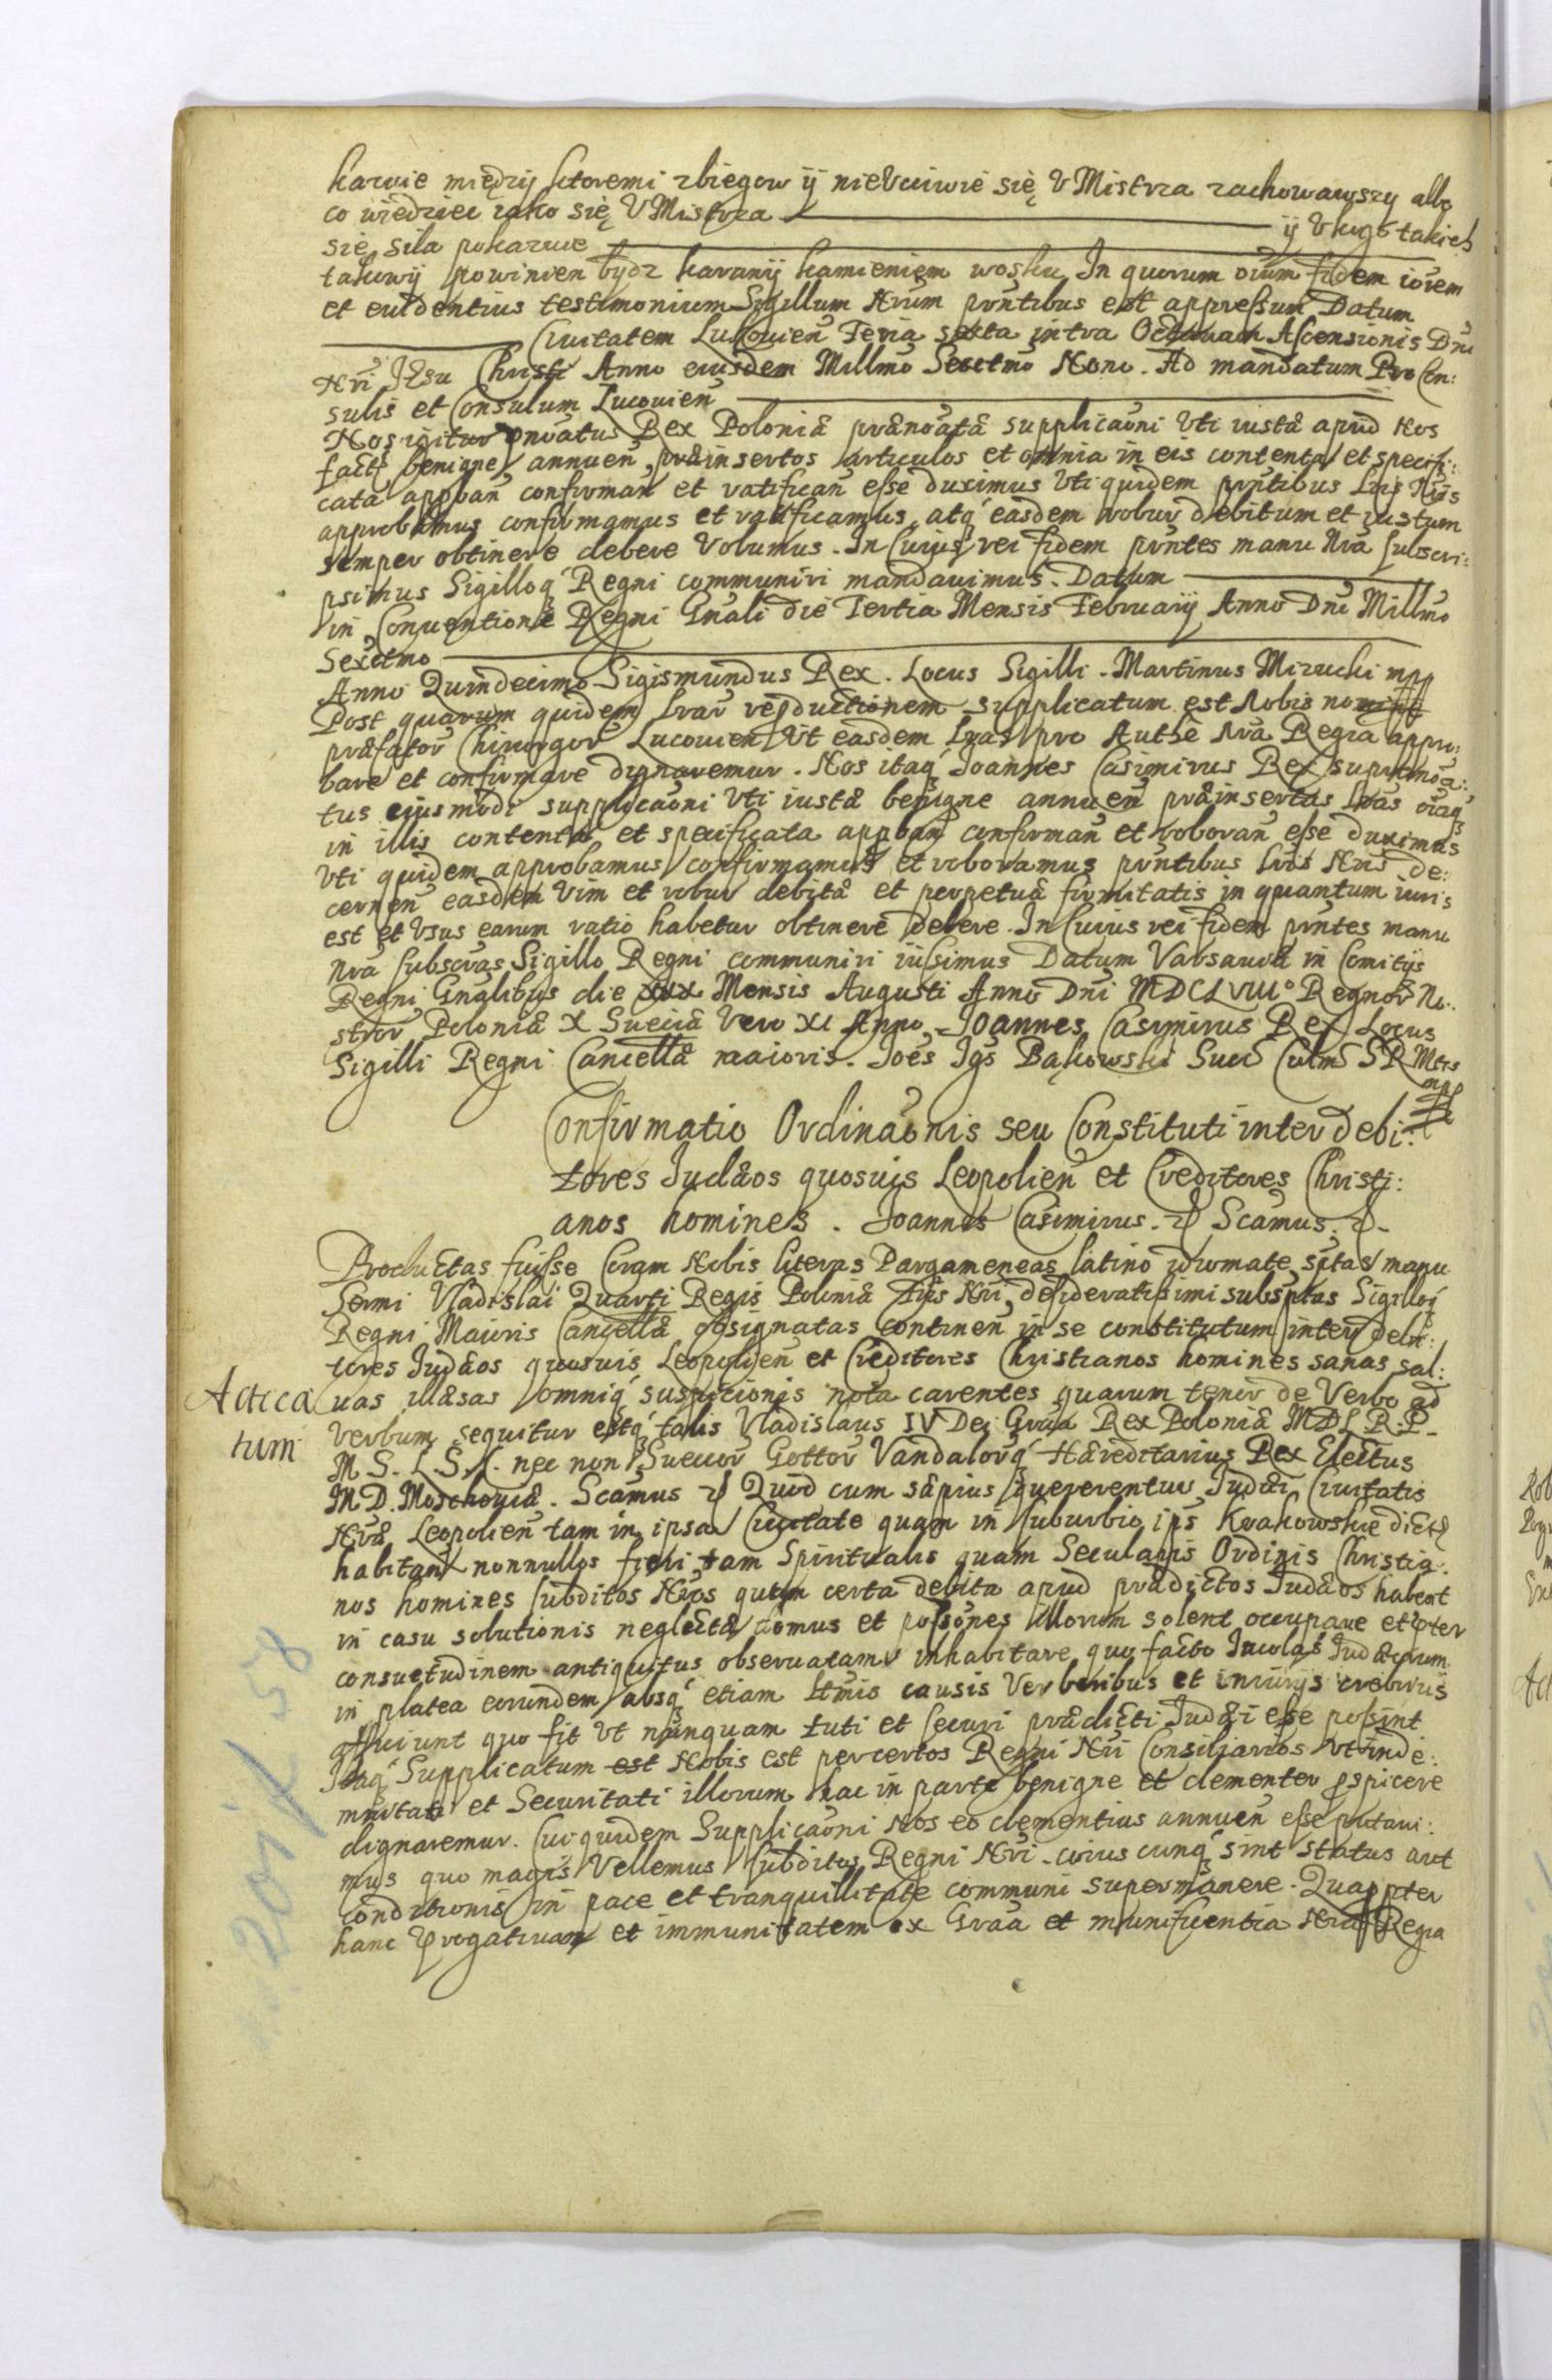 karwie między ktoremi zbiegow ij nieVcciwie się V Mistrza zachowawszy albo
co wiedziec iako się V Mistrza ij V kogo takich
się siła pokazuie
takowij powinien bydz karanij kamieniem wosku In quorum oium fidem
et euidentius testimonium Sigillum Nrum pntibus est appressum Datum
Ciuitatem Lukouien Feria sexta intra Octauam Ascensionis Dni
Nri Jesu Christi Anno eiusdem Millmo Sexctmo Nono. Ad mandatum Pro Con:
sulis et Consulum Lucouien
Nos igitur pnoatus Rex Poloniæ prænoatæ supplicaoni Vti iustæ apud Nos
factæ benigne annuen, præinsertos articulos et omnia in eis contenta et specifi:
cata appban confirman et ratifican esse duximus Vti quidem pntibus Lris Nris
approbamus confirmamus et ratificamus, atq easdem robur debitum et iustum
semper obtinere debere Volumus. In Cuius rei fidem pntes manu Nra subscri:
psimus Sigilloq Regni communiri mandauimus. Datum
in Conuentione Regni Gnali die Tertia Mensis Februarij Anno Dni Millmo
Sexctmo
Anno Quindecimo Sigismundus Rex. Locus Sigilli. Martinus Mizucki mpp
Post quarum quidem Lrar reproductionem supplicatum est Nobis nomine
præfator Chirurgor Lucouien Vt easdem Lras pro Authe Nra Regia appro:
bare et confirmare dignaremur. Nos itaq Joannes Casimirus Rex supranoa:
tus eiusmodi supplicaoni Vti iustæ benigne annuen præinsertas Lras oiaq
in illis contenta et specificata appban confirman et roboran esse duximus
Vti quidem approbamus confirmamus et roboramus pntibus Lris Nris De:
cernen easdem Vim et robur debitæ et perpetuæ firmitatis in quantum iuris
est et Vsus earum ratio habetur obtinere debere. In Cuius rei fidem pntes manu
Nra subscras Sigillo Regni communiri iussimus Datum Varsauiæ in Comitijs
Regni Gnalibus die XXX Mensis Augusti Anno Dni MDCLVIIIo Regnor No:
stror Poloniæ X Sueciæ Vero XI Anno. Joannes Casimirus Rex Locus
Sigilli Regni Cancellæ maioris. Joes Igs Bąkowski Succ Culm SR Mtis
mpp
Confirmatio Ordinaonis seu Constituti inter Debi:
tores Judæos quosuis Leopolien et Creditores Christi:
anos homines. Joannes Casimirus. Scamus.
Productas fuisse Coram Nobis literas Pargameneas latino idiomate sptas manu
Sermi Vladislai Quarti Regis Poloniæ Fris Nri desideratissimi subsptas Sigilloq
Regni Maioris Cancellæ obsignatas continen in se constitutum inter Debi:
tores Judæos quosuis Leopolien et Creditores Christianos homines sanas sal:
uas illæsas omniq suspitionis nota carentes quarum tenor de Verbo ad
Verbum sequitur estq talis Vladislaus IV Dei Graa Rex Poloniæ MDL R. P.
M S. L S. C. nec non Suecor Gottor Vandalorq Hæreditarius Rex Electus
M D. Moschouiæ. Scamus Quod cum sæpius quererentur Judæi Ciuitatis
Nræ Leopolien tam in ipsa Ciuitate quam in suburbio ips Krakowskie dicto
habitan nonnullos fieri tam Spiritualis quam Secularis Ordinis Christia:
nos homines Subditos Nros qui certa debita apud prædictos Judæos habent
in casu solutionis neglectæ domus et possones illorum solent occupare et pter
consuetudinem antiquitus obseruatam inhabitare quo facto Incolas Judæorum
in platea eorundem absq etiam Ltmis causis Verberibus et iniurijs crebrius
afficiunt quo fit Vt nunquam tuti et securi prædicti Judæi esse possint
Itaq Supplicatum est Nobis est per certos Regni Nri Consiliarios Vt inde:
mnitati et Securitati illorum hac in parte benigne et clementer pspicere
dignaremur. Cui quidem Supplicaoni Nos eo clementius annuen esse putaui:
mus quo magis Vellemus Subditos Regni Nri cuius cunq sint status aut
conditionis in pace et tranquillitate communi supermanere. Quappter
hanc Prrogatiuam et immunitatem ex Graa et munificentia Nra Regia
Actica
tum